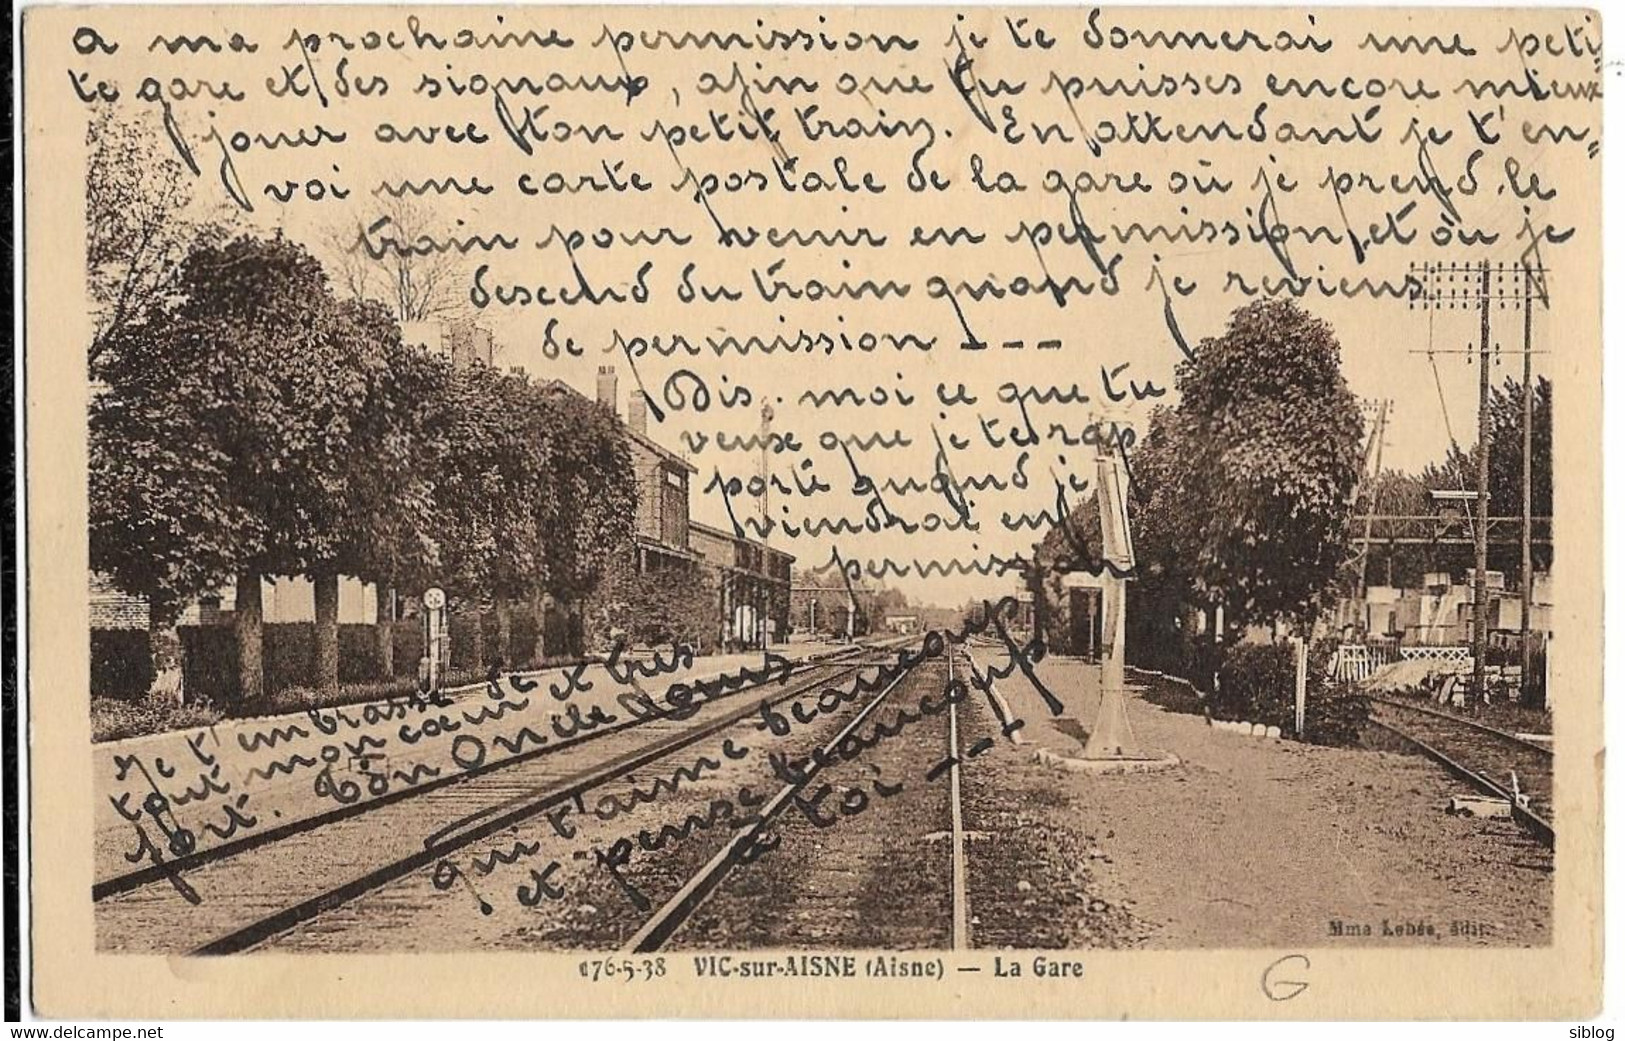 a ma prochaine permission je te donnerai une peti-
te gare et des signaux, afin que tu puisses encore mieux
jouer avec ton petit train. En attendant je t'en=
voi une carte postale de la gare où je prend le
train pour venir en permission, et où je
descend du train quand je reviens
de permission - - -
Dis-moi ce que tu
veux que je te rap-
porte quand je
viendrai en
permission
Je t'embrasse de
tout mon cœur et très
fort. Ton Oncle Louis
qui t'aime beaucoup
et pense beaucoup
à toi - - -
Mme Lebée, édit.
176-5-38 VIC-sur-AISNE (Aisne) — La Gare
G
siblog
www.delcampe.net